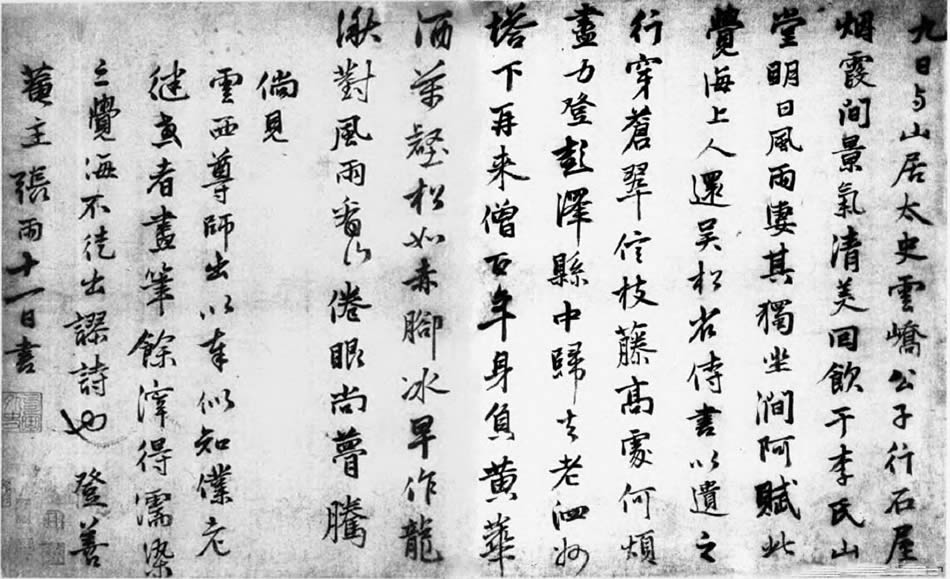 九日与山居太史雲嶠公子行石屋
烟霞間景氣清美回飲于李氏山
堂明日風雨淒其獨坐澗阿賦此
覺海上人還吴松省侍書以遺之
行穿蒼翠信枝藤高處何煩
盡力登彭澤縣中歸去老泗州
塔下再来僧百年身負黄華
酒萬壑松如赤腳冰早作龍
湫對風雨倦眼尚瞢騰
倘見
雲西尊師出以奉似知僕尤
健或者畫筆餘滓得濡染
之覺海不徒出謬詩也登善
菴主張雨十一日書